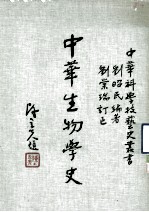 中華科學技藝史叢書
劉昭民編著
劉棠瑞訂正
中華生物學史